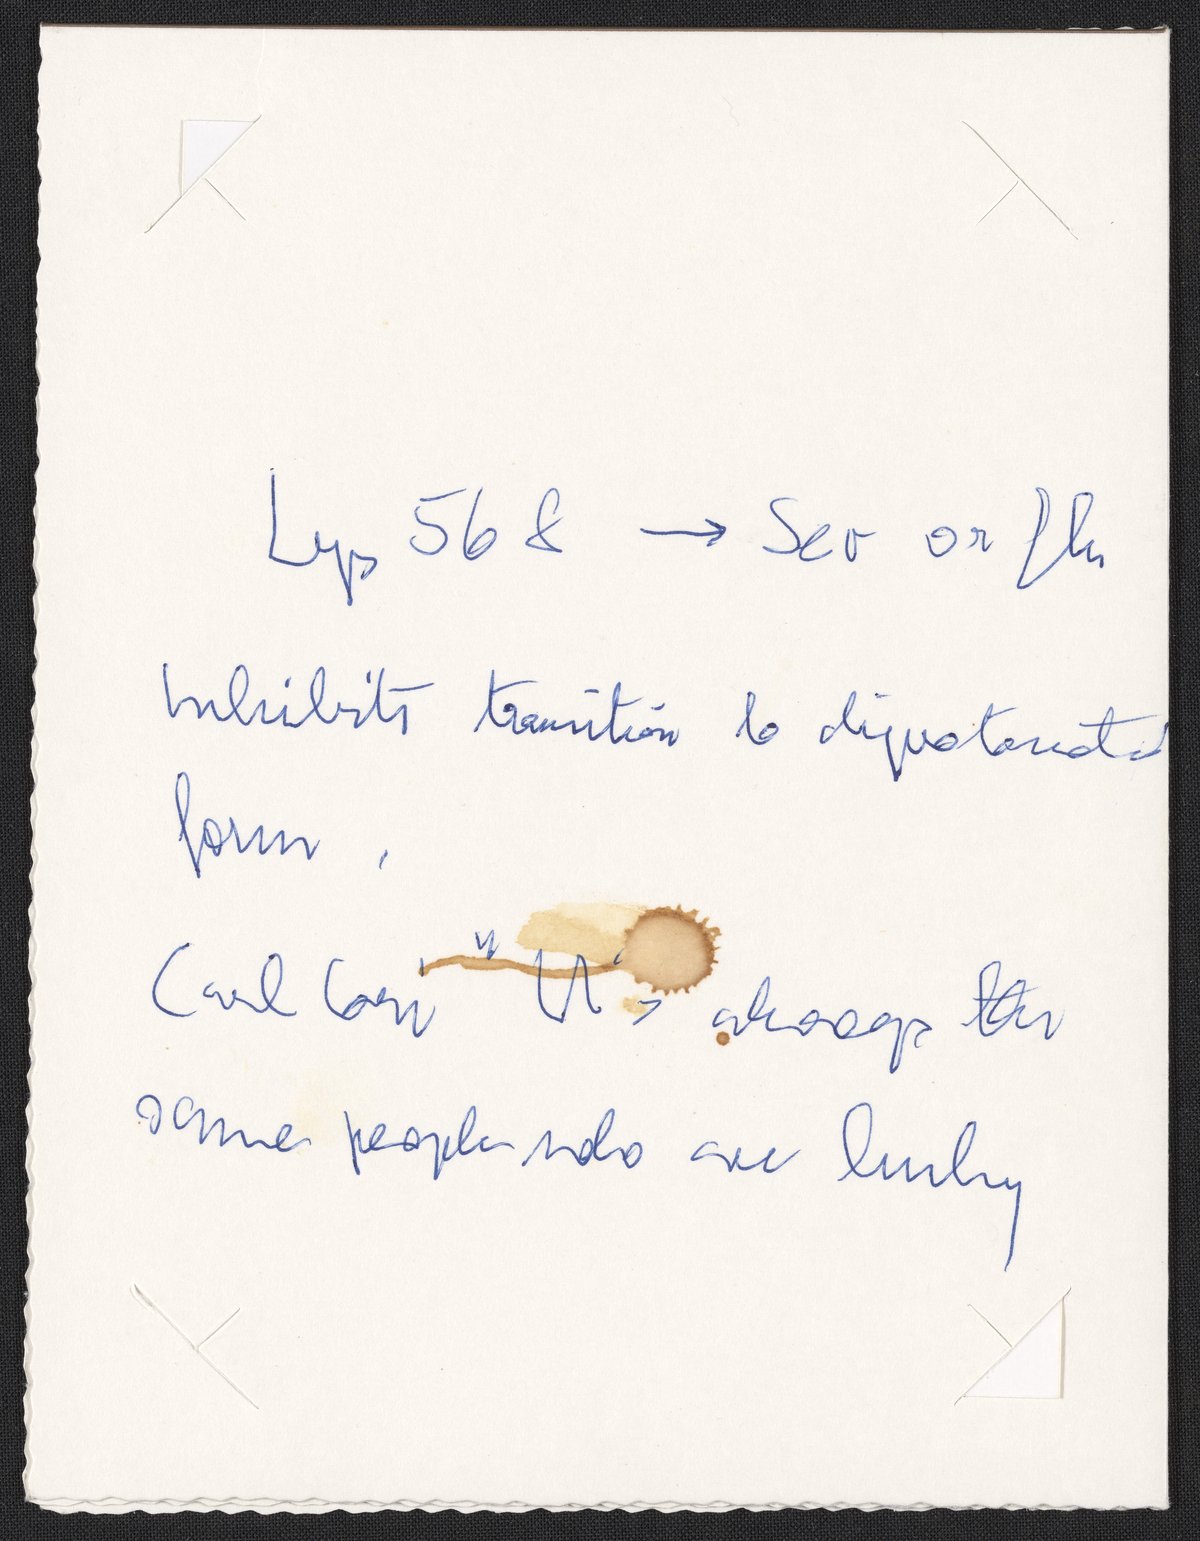 Lys 568 → Ser or Glu
inhibits transition to diprotonated
form.
Carl Cori " It's always the
same people who are lucky